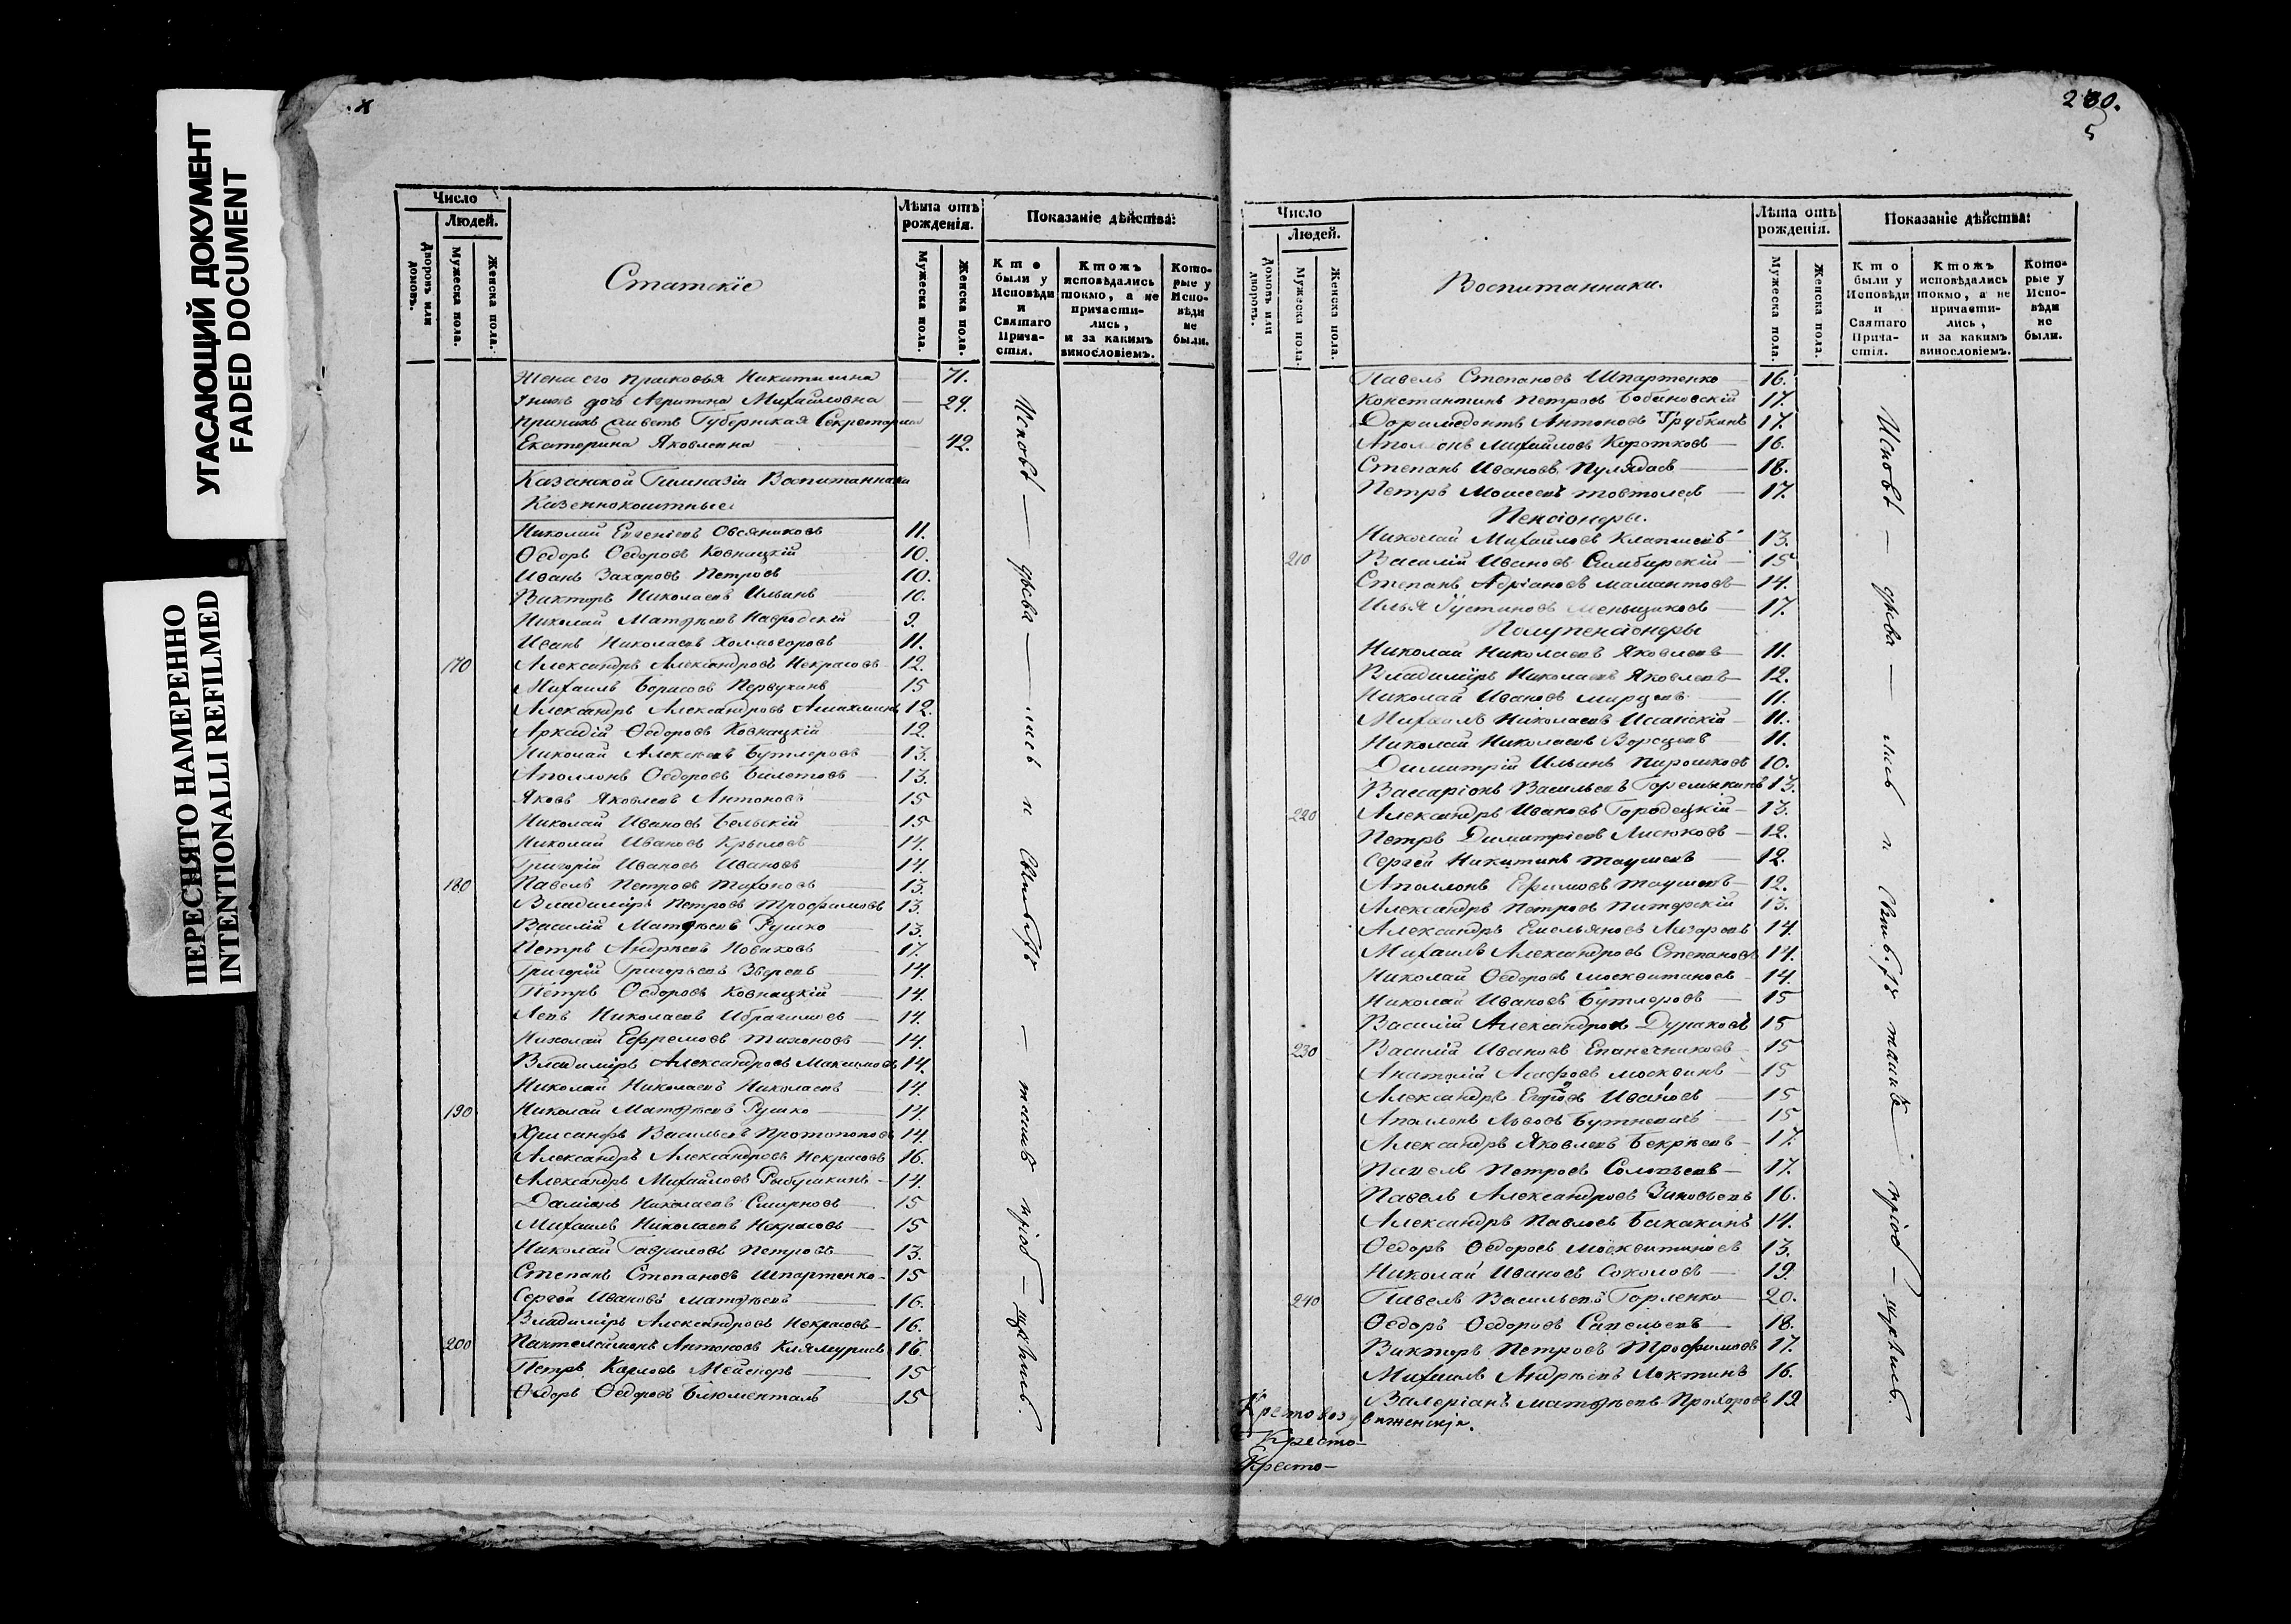 УГАСАЮЩИЙ ДОКУМЕНТ
FADED DOCUMENT
ПЕРЕСНЯТО НАМЕРЕННО
INTENTIONALLI REFILMED
Число
Людей.
Дворовъ или домовъ.
Мужеска пола.
Женска пола.
Статскіе
Лѣта отъ рожденія.
Мужеска пола.
Женска пола.
Показаніе дѣйства:
Кто были у Исповѣди и Святаго Прича-стія.
Ктожъ исповѣдались токмо, а не причасти-лись, и за какимъ винословіемъ.
Кото-рые у Испо-вѣди не были.
Жена его Прасковья Никитишна 71.
дочь Агрипина Михайловна 29.
Губернская Секретарша
Екатерина Яковлевна 42.
Казанской Гимназіи Воспитанники
Казеннокоштные
Николай Евгеніевъ Овсяниковъ 11.
Ѳедоръ Ѳедоровъ Ковнацкій 10.
Иванъ Захаровъ Петровъ 10.
Викторъ Николаевъ Ильинъ 10.
Николай Матвѣевъ Навродскій 9.
Иванъ Николаевъ Холмогоровъ 11.
170 Александръ Александровъ Некрасовъ 12.
Михаилъ Борисовъ Первухинъ 15
Александръ Александровъ 12.
Аркадій Ѳедоровъ Ковнацкій 12.
Николай Алексѣевъ Бутлеровъ 13.
Аполлонъ Ѳедоровъ Билетовъ 13.
Яковъ Яковлевъ Антоновъ 15
Николай Ивановъ Бельскій 15
Николай Ивановъ Крыловъ 14.
Григорій Ивановъ Ивановъ 14.
180 Павелъ Петровъ Тихоновъ 13.
Владиміръ Петровъ Трофимовъ 13.
Василій Матвѣевъ Рушко 13.
Петръ Андрѣевъ Новиковъ 17.
Григорій Григорьевъ Зверевъ 14.
Петръ Ѳедоровъ Ковнацкій 14.
Левъ Николаевъ Ибрагимовъ 14.
Николай Ефремовъ Тихоновъ 14.
Владиміръ Александровъ Максимовъ 14.
Николай Николаевъ Николаевъ 14.
190 Николай Матвѣевъ Рушко 14.
Хрисанфъ Васильевъ Протопоповъ 14.
Александръ Александровъ Некрасовъ 16.
Александръ Михайловъ Рыбушкинъ 14.
Даміанъ Николаевъ Смирновъ 15
Михаилъ Николаевъ Некрасовъ 15
Николай Гавриловъ Петровъ 13.
Степанъ Степановъ Шпартенко 15
Сергей Ивановъ Матвѣевъ 16.
Владиміръ Александровъ Некрасовъ 16.
200 Пантелеймонъ Антоновъ 16.
Петръ Карловъ Мейснеръ 15
Ѳедоръ Ѳедоровъ Блюменталь 15
230.
5
Число
Людей.
Домовъ или дворовъ.
Мужеска пола.
Женска пола.
Воспитанники.
Лѣта отъ рожденія.
Мужеска пола.
Женска пола.
Показаніе дѣйства:
Кто были у Исповѣди и Святаго Прича-стія.
Ктожъ исповѣдались токмо, а не причасти-лись, и за какимъ винословіемъ.
Кото-рые у Испо-вѣди не были.
Павелъ Степановъ Шпартенко 16.
Константинъ Петровъ Бобановскій 17.
Доримедонтъ Антоновъ Трубкинъ 17.
Аполлонъ Михайловъ Коротковъ 16.
Степанъ Ивановъ 18.
Петръ Моисеевъ 17.
Пенсіонеры.
Николай Михайловъ 13.
210 Василій Ивановъ Симбирскій 15
Степанъ Адріановъ Мамантовъ 14.
Илья Густиновъ Меньщиковъ 17.
Полупенсіонеры
Николай Николаевъ Яковлевъ 11.
Владиміръ Николаевъ Яковлевъ 12.
Николай Ивановъ 11.
Михаилъ Николаевъ 11.
Николай Николаевъ 11.
Димитрій Ильинъ Пирошковъ 10.
Вассаріонъ Васильевъ Горемыкинъ 13.
220 Александръ Ивановъ Городецкій 13.
Петръ Димитріевъ Лисюковъ 12.
Сергей Никитинъ 12.
Аполлонъ Ефимовъ 12.
Александръ Петровъ Питерскій 13.
Александръ Емельяновъ Лазаревъ 14.
Михаилъ Александровъ Степановъ 14.
Николай Ѳедоровъ Москвитиновъ 14.
Николай Ивановъ Бутлеровъ 15
Василій Александровъ Дураковъ 15
230 Василій Ивановъ Епанечниковъ 15
Анатолій Асафовъ Москвинъ 15
Александръ Егоровъ Ивановъ 15
Аполлонъ Львовъ Бутневичъ 15
Александръ Яковлевъ Бекрѣевъ 17.
Павелъ Петровъ Соловьевъ 17.
Павелъ Александровъ Зиновьевъ 16.
Александръ Павловъ Бакакинъ 14.
Ѳедоръ Ѳедоровъ Москвитиновъ 13.
Николай Ивановъ Соколовъ 19.
240 Павелъ Васильевъ Горленко 20.
Ѳедоръ Ѳедоровъ Савельевъ 18.
Викторъ Петровъ Трофимовъ 17.
Михаилъ Андрѣевъ Локтинъ 16.
Валеріанъ Матвѣевъ Прохоровъ 19
Крестовоздвиженскія.
Кресто-
Кресто-